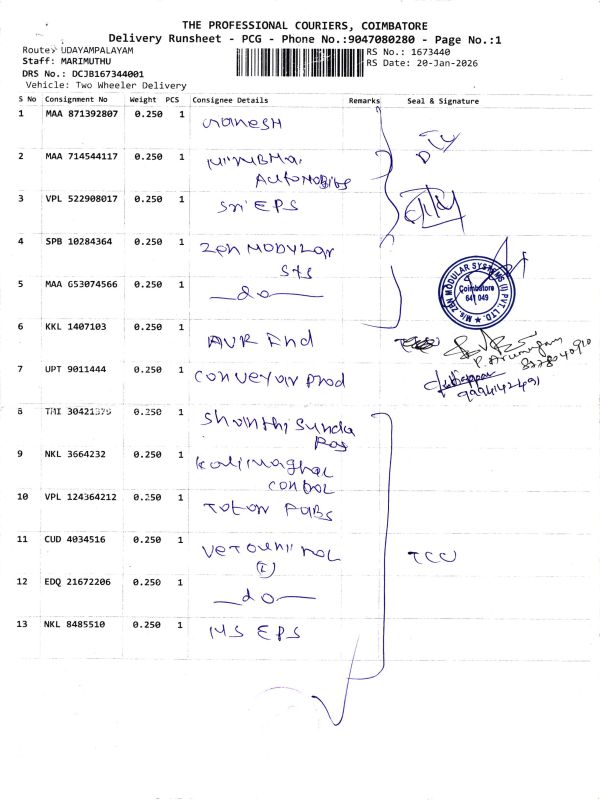 THE PROFESSIONAL COURIERS, COIMBATORE
Delivery Runsheet - PCG - Phone No.:9047080280 - Page No.:1
Route: UDAYAMPALAYAM
RS No.: 1673440
Staff: MARIMUTHU
RS Date: 20-Jan-2026
DRS No.: DCJB167344001
Vehicle: Two Wheeler Delivery
S No Consignment No Weight PCS Consignee Details Remarks Seal & Signature
1 MAA 871392807 0.250 1 Ganesh
2 MAA 714544117 0.250 1
Automobiles
3 VPL 522908017 0.250 1 Sri EPS
4 SPB 10284364 0.250 1 Zen Modular
Sys
5 MAA 653074566 0.250 1 —do—
M/s. ZAN MODULAR SYSTEMS (I) PVT. LTD.
Coimbatore
641 049
6 KKL 1407103 0.250 1 AVR Ind
P. Arumugam
7 UPT 9011444 0.250 1 Conveyor prod
8 TMI 30421379 0.250 1 Shanthi Sunda
Raj
9 NKL 3664232 0.250 1
Control
10 VPL 124364212 0.250 1 Fabs
11 CUD 4034516 0.250 1
(I)
TCC
12 EDQ 21672206 0.250 1 —do—
13 NKL 8485510 0.250 1 MS EPS